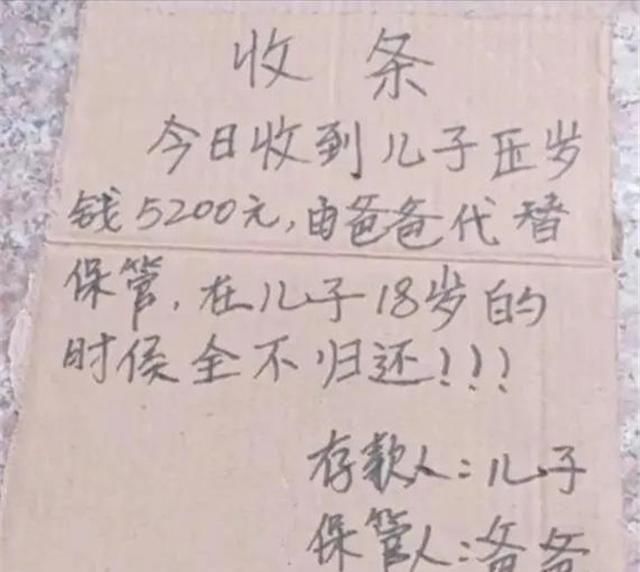 收条
今日收到儿子压岁
钱5200元,由爸爸代替
保管,在儿子18岁的
时侯全不归还!!!
存款人:儿子
保管人:爸爸